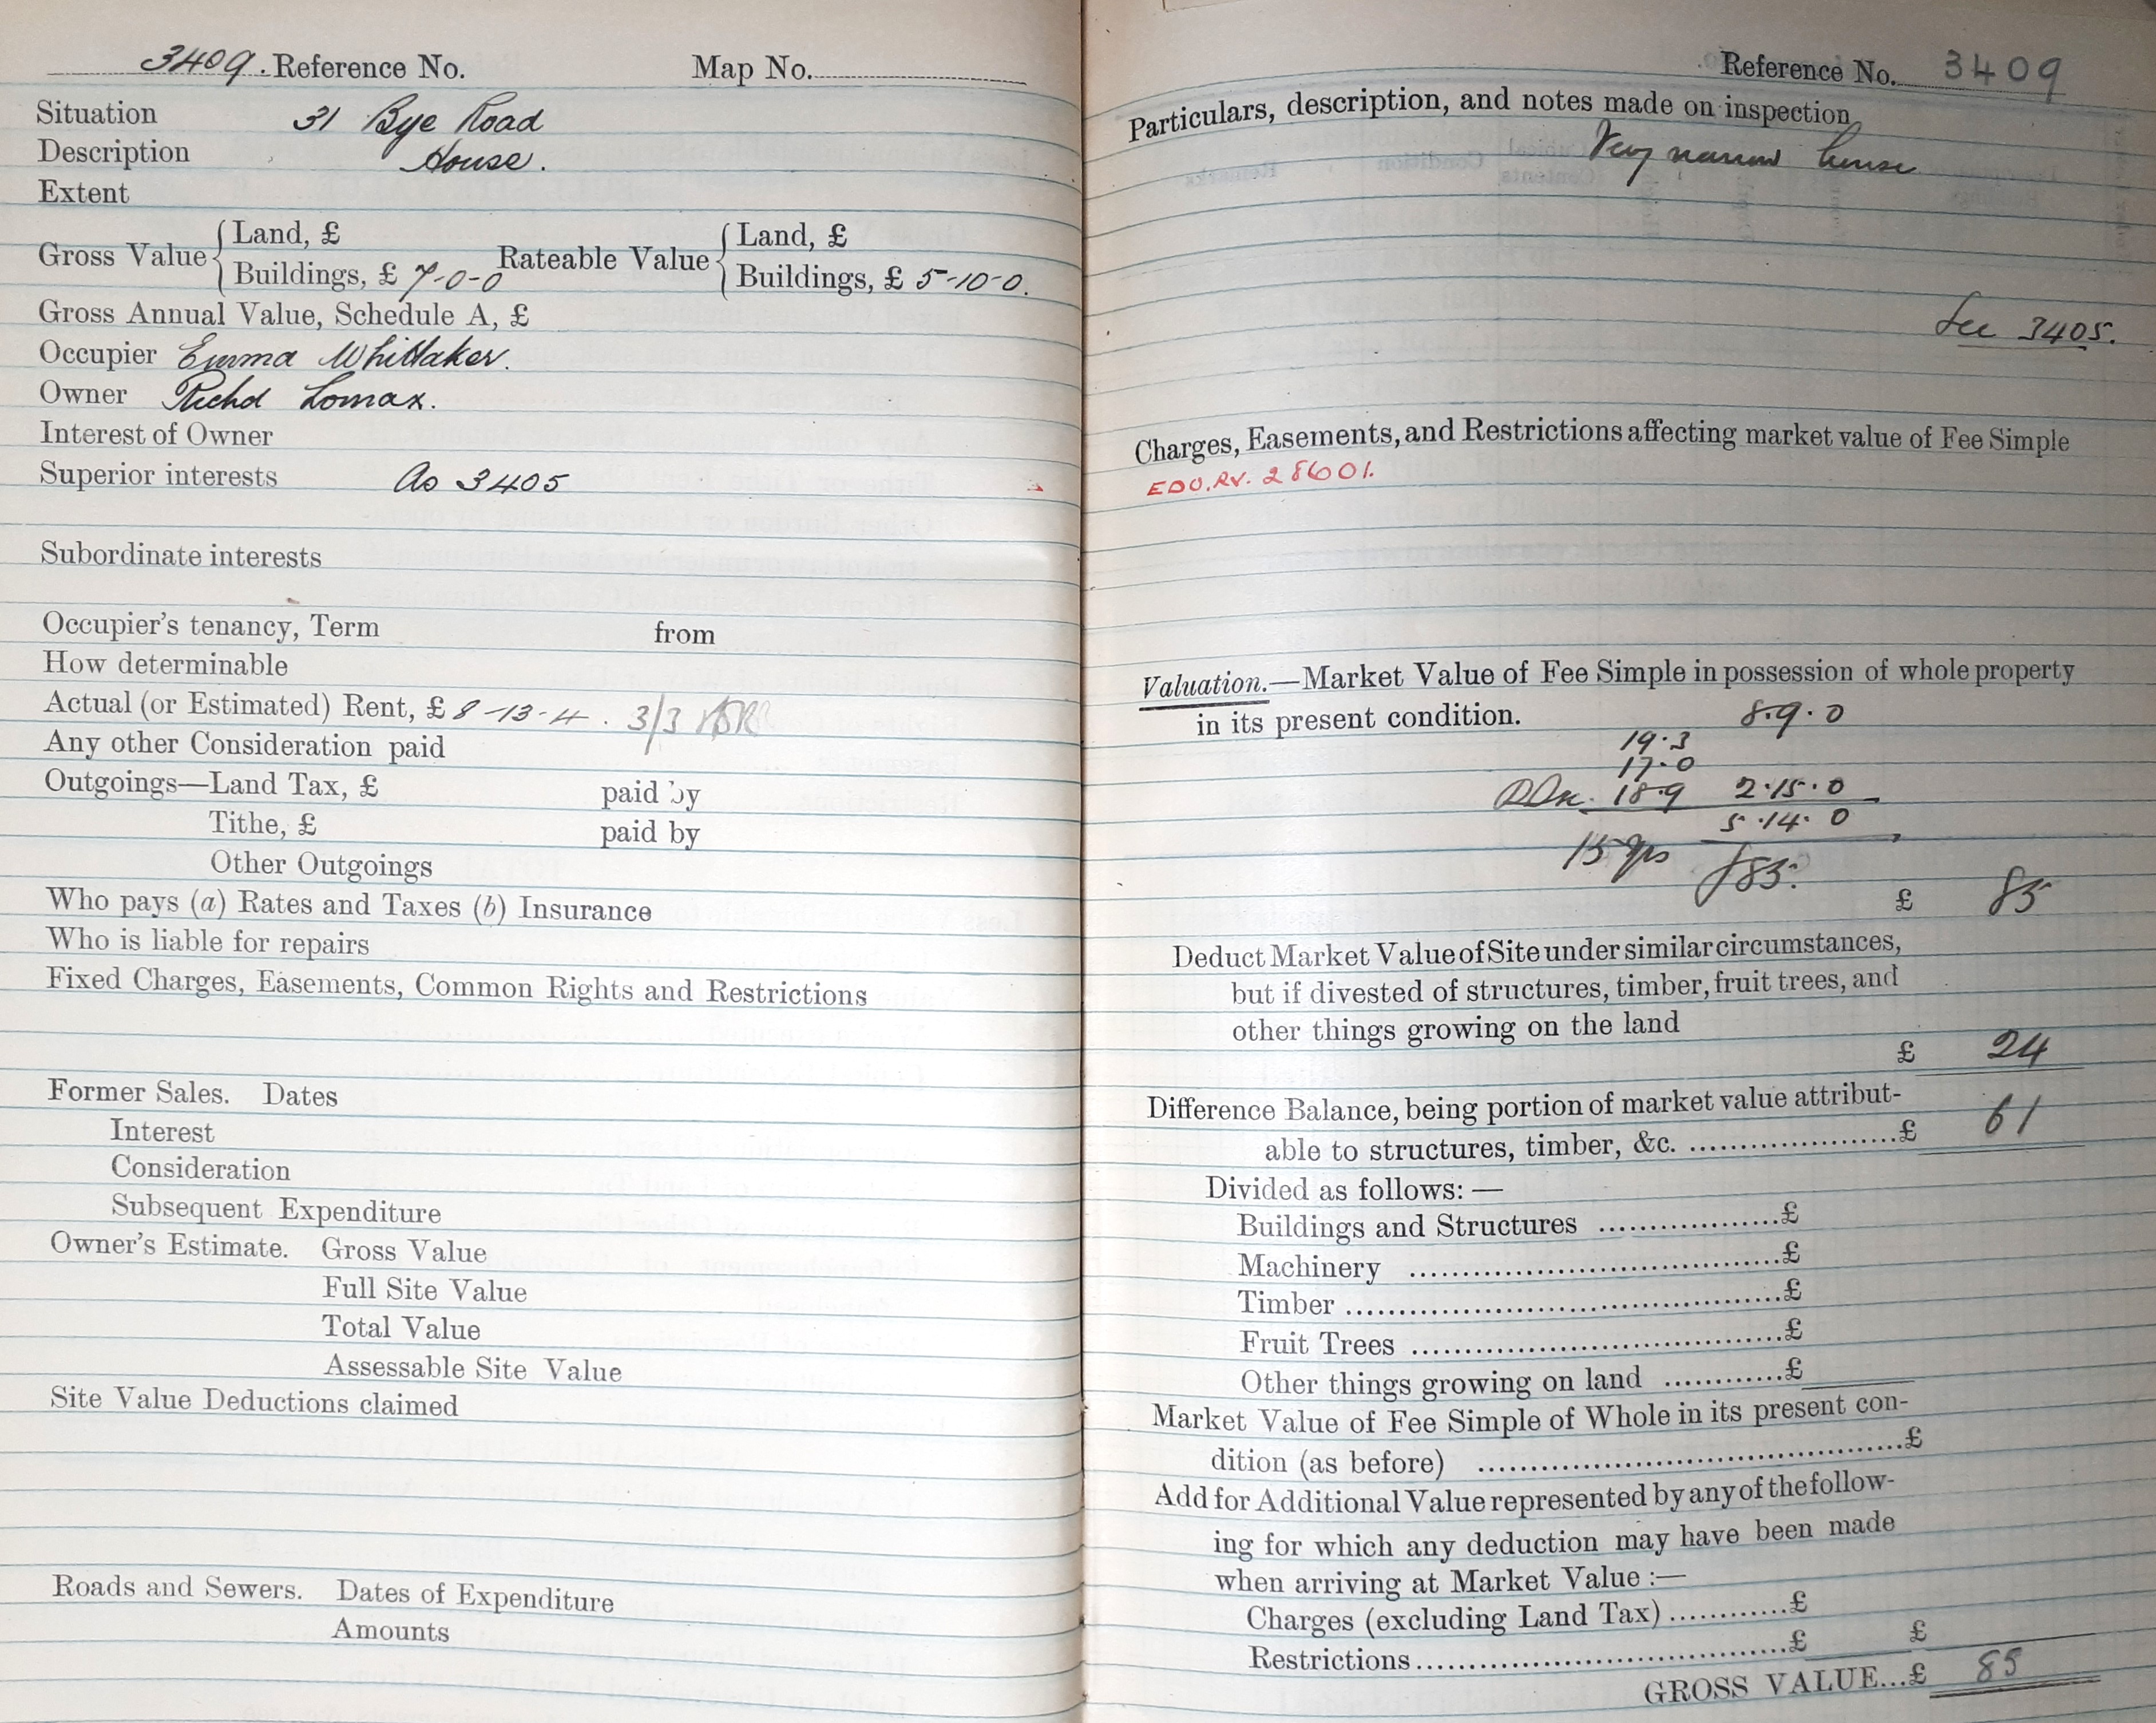 3409. Reference No. Map No.
Situation 31 Bye Road
Description House.
Extent
Gross Value { Land, £ Rateable Value { Land, £
Buildings, £ 7-0-0 Buildings, £ 5-10-0.
Gross Annual Value, Schedule A, £
Occupier Emma Whittaker.
Owner Richd Lomax.
Interest of Owner
Superior interests As 3405
Subordinate interests
Occupier's tenancy, Term from
How determinable
Actual (or Estimated) Rent, £ 8-13-4. 3/3
Any other Consideration paid
Outgoings—Land Tax, £ paid by
Tithe, £ paid by
Other Outgoings
Who pays (a) Rates and Taxes (b) Insurance
Who is liable for repairs
Fixed Charges, Easements, Common Rights and Restrictions
Former Sales. Dates
Interest
Consideration
Subsequent Expenditure
Owner's Estimate. Gross Value
Full Site Value
Total Value
Assessable Site Value
Site Value Deductions claimed
Roads and Sewers. Dates of Expenditure
Amounts
Reference No. 3409
Particulars, description, and notes made on inspection
Very narrow house
See 3405.
Charges, Easements, and Restrictions affecting market value of Fee Simple
EDU.RV. 28601.
Valuation.—Market Value of Fee Simple in possession of whole property
in its present condition. 8.9.0
19.3
17.0
18.9 2.15.0
5.14.0
15 yrs £85.
£ 85
Deduct Market Value of Site under similar circumstances,
but if divested of structures, timber, fruit trees, and
other things growing on the land
£ 24
Difference Balance, being portion of market value attribut-
able to structures, timber, &c. ....................£ 61
Divided as follows: —
Buildings and Structures ..................£
Machinery ....................................£
Timber ..........................................£
Fruit Trees ....................................£
Other things growing on land ............£
Market Value of Fee Simple of Whole in its present con-
dition (as before) ..........................................£
Add for Additional Value represented by any of the follow-
ing for which any deduction may have been made
when arriving at Market Value :—
Charges (excluding Land Tax) ............£
Restrictions.....................................£ £
GROSS VALUE...£ 85